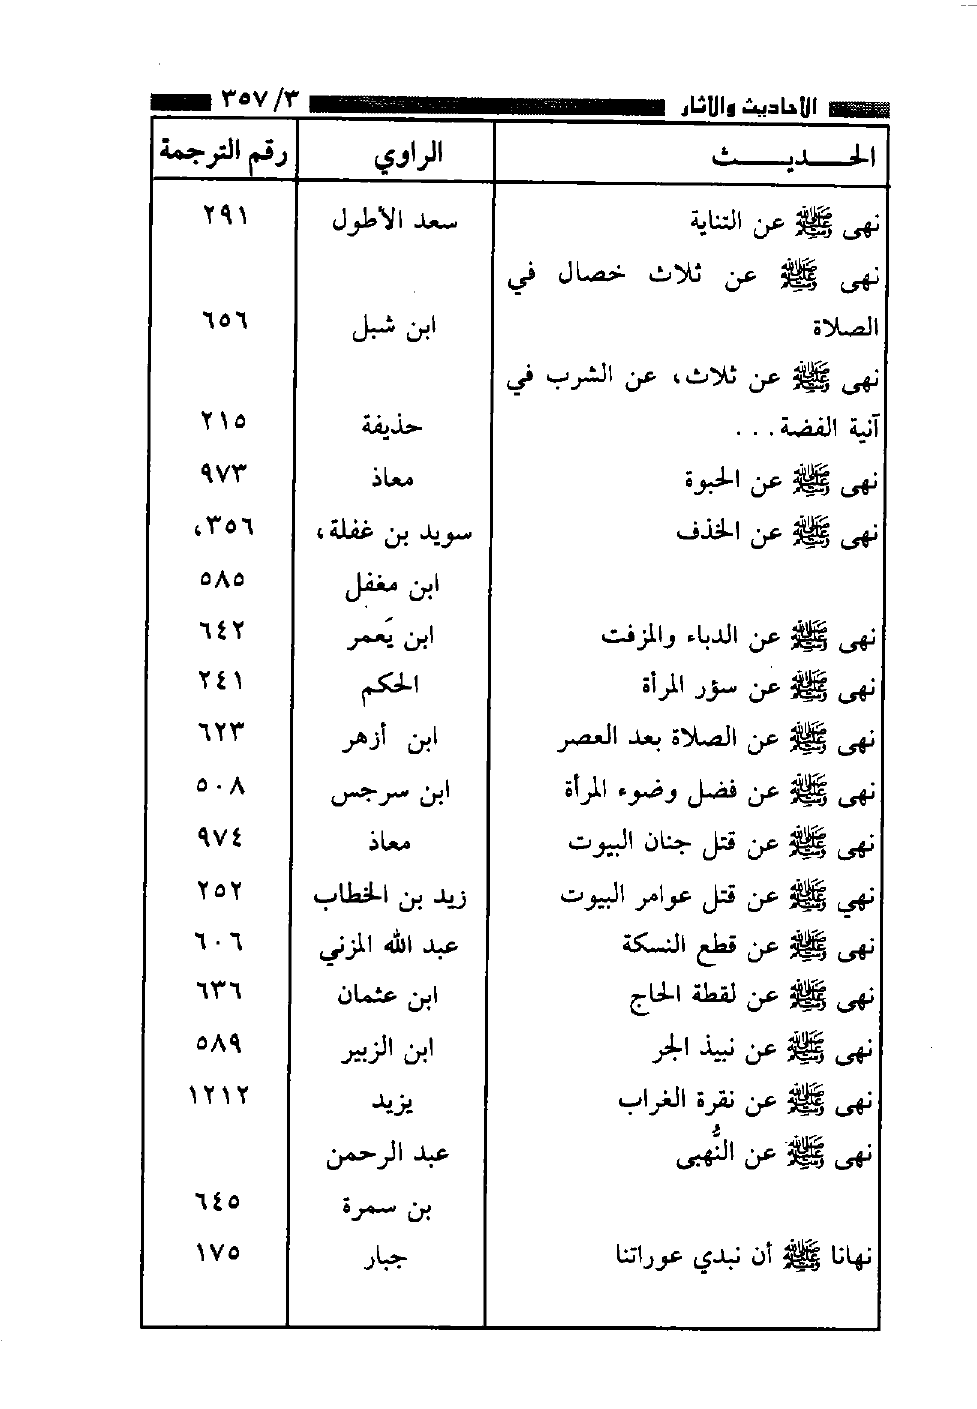 الأحاديث والآثار ٣/ ٣٥٧
الحـــديـــــث الراوي رقم الترجمة
نهى ﷺ عن التناية سعد الأطول ٢٩١
نهى ﷺ عن ثلاث خصال في
الصلاة ابن شبل ٦٥٦
نهى ﷺ عن ثلاث، عن الشرب في
آنية الفضة... حذيفة ٢١٥
نهى ﷺ عن الحبوة معاذ ٩٧٣
نهى ﷺ عن الخذف سويد بن غفلة، ٣٥٦،
ابن مغفل ٥٨٥
نهى ﷺ عن الدباء والمزفت ابن يَعمر ٦٤٢
نهى ﷺ عن سؤر المرأة الحكم ٢٤١
نهى ﷺ عن الصلاة بعد العصر ابن أزهر ٦٢٣
نهى ﷺ عن فضل وضوء المرأة ابن سرجس ٥٠٨
نهى ﷺ عن قتل جنان البيوت معاذ ٩٧٤
نهي ﷺ عن قتل عوامر البيوت زيد بن الخطاب ٢٥٢
نهى ﷺ عن قطع النسكة عبد الله المزني ٦٠٦
نهى ﷺ عن لقطة الحاج ابن عثمان ٦٣٦
نهى ﷺ عن نبيذ الجر ابن الزبير ٥٨٩
نهى ﷺ عن نقرة الغراب يزيد ١٢١٢
نهى ﷺ عن النُّهبى عبد الرحمن
بن سمرة ٦٤٥
نهانا ﷺ أن نبدي عوراتنا جبار ١٧٥